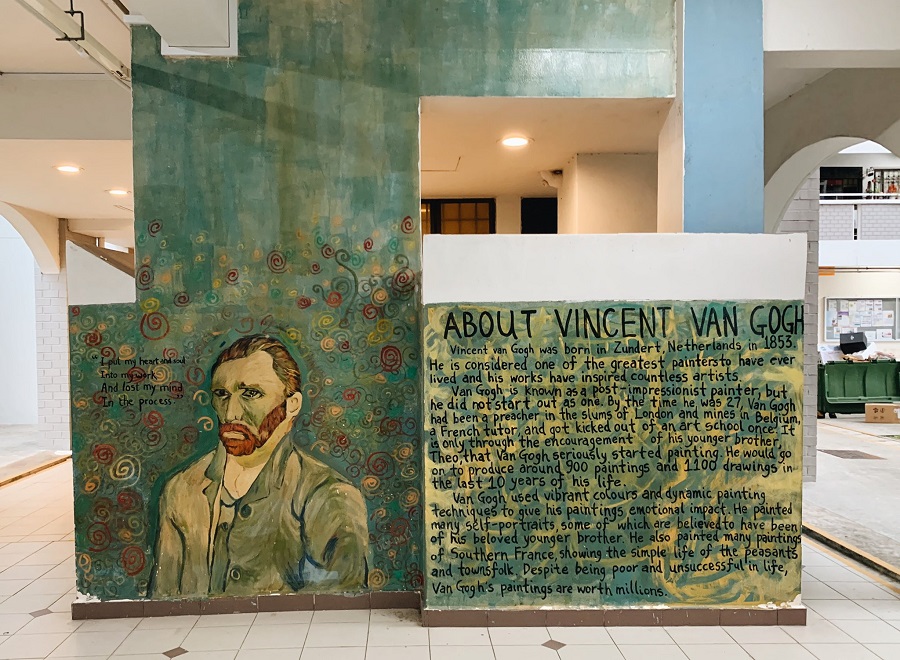 "I put my heart and soul
Into my work,
And lost my mind
In the process."
ABOUT VINCENT VAN GOGH
Vincent van Gogh was born in Zundert, Netherlands in 1853.
He is considered one of the greatest painters to have ever
lived and his works have inspired countless artists.
Van Gogh is known as a post-impressionist painter, but
he did not start out as one. By the time he was 27, Van Gogh
had been a preacher in the slums of London and mines in Belgium,
a French tutor, and got kicked out of an art school once. It
is only through the encouragement of his younger brother,
Theo, that Van Gogh seriously started painting. He would go
on to produce around 900 paintings and 1100 drawings in
the last 10 years of his life.
Van Gogh used vibrant colours and dynamic painting
techniques to give his paintings emotional impact. He painted
many self-portraits, some of which are believed to have been
of his beloved younger brother. He also painted many paintings
of Southern France, showing the simple life of the peasants
and townsfolk. Despite being poor and unsuccessful in life,
Van Gogh's paintings are worth millions.